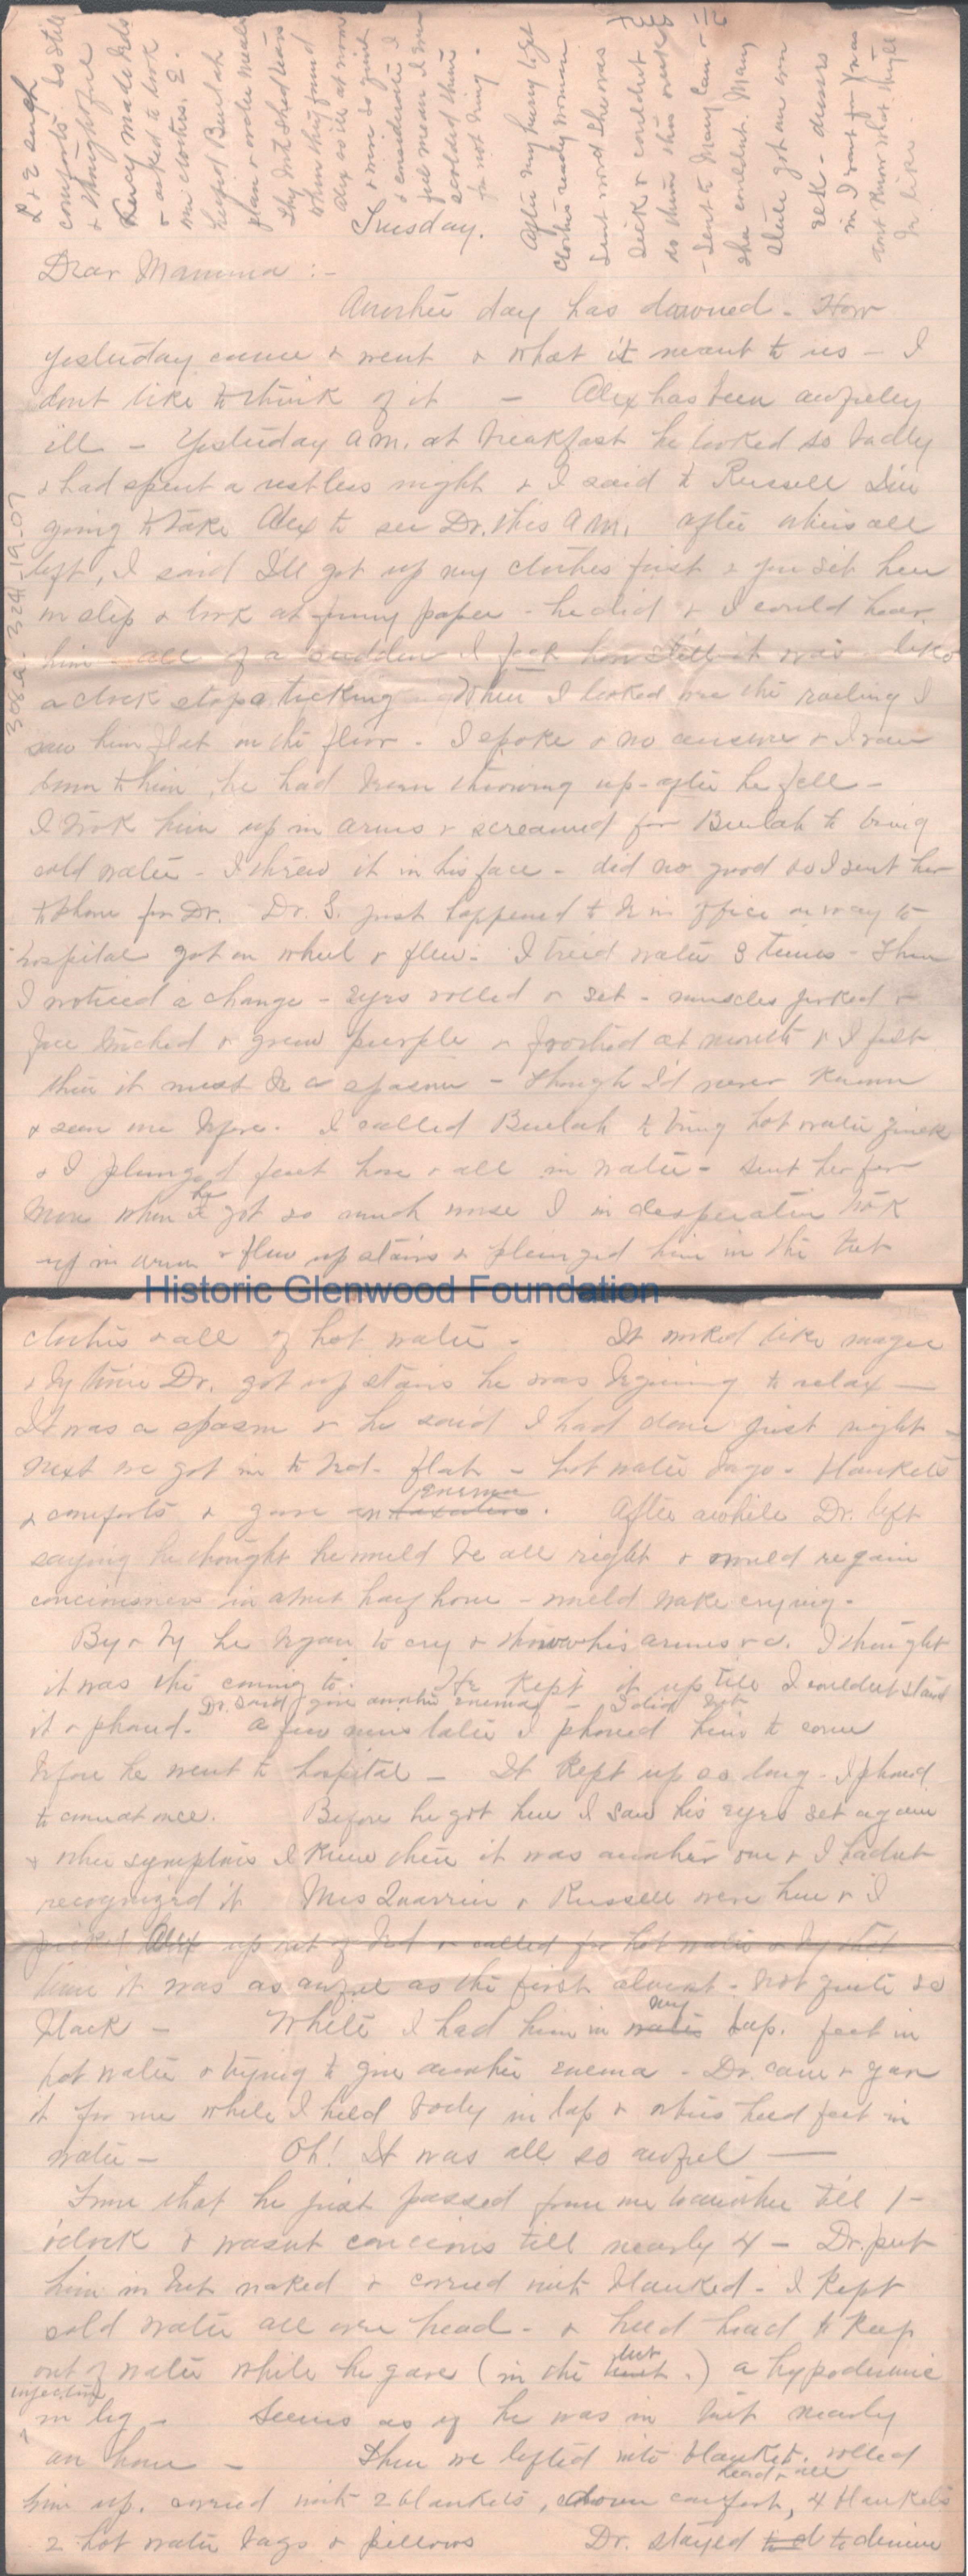 R & E such
comforts. So still
& thoughtful
Percy made beds
& asked to hook
me clothes. E.
helped Beulah
plan & order meals
They both shed tears
when they found
Alex so ill at noon
& were so quiet
& considerate I
feel mean I ever
scolded them
for not being.
After my hurry to get
clothes ready woman
sent word she was
sick & couldn't
do them this week
- Sent to Mary Lou &
she couldn't. Many
else got me won
sell - dinners
in I want for Jean
dont know what might
be like.
Tuesday.
Dear Mamma :-
Another day has dawned - How
yesterday came & went & what it meant to us - I
dont like to think of it - Alex has been awfuly
ill - Yesterday A.M. at breakfast he looked so badly
& had spent a restless night & I said to Russell I'm
going to take Alex to see Dr. this A.M. after others all
left, I said I'll get up my clothes first & you sit here
on step & look at funny paper - he did & I could hear
him - all of a sudden I feel how still it was - like
a clock stops ticking - When I looked over the railing I
saw him flat on the floor - I spoke & no answer & I ran
down to him, he had been throwing up - after he fell -
I took him up in arms & screamed for Beulah to bring
cold water - I threw it in his face - did no good so I sent her
to phone for Dr. Dr. S. just happened to be in office on way to
hospital got on wheel & flew - I tried water 3 times - Then
I noticed a change - eyes rolled & set - muscles jerked &
face twitched & grew purple & frothed at mouth & I felt
then it must be a spasm - though I'd never known
& seen one before. I called Beulah to bring hot water quick
& I plunged feet hose & all in water - sent her for
more when he got so much worse I in desperation took
up in arms & flew up stairs & plunged him in the tub
Historic Glenwood Foundation
clothes & all of hot water - It worked like magic
& by time Dr. got up stairs he was begining to relax -
It was a spasm & he said I had done just right -
Next we got in to bed - flat - hot water bags - blankets
& comforts & gave an enema. After awhile Dr. left
saying he thought he would be all right & would regain
conciousness in about half hour - would wake crying -
By & by he began to cry & throw his arms & c. I thought
it was the coming to. He kept it up till I couldn't stand
it & phoned. Dr. said give another enema - I did but
A few mins later I phoned him to come
before he went to hospital - It kept up so long - I phoned
to come at once. Before he got here I saw his eyes set again
& other symptoms I knew then it was another one & I hadn't
recognized it Mrs Quarrier & Russell were here & I
picked Alex up out of bed & called for hot water & by that
time it was as awful as the first almost - not quite so
black - While I had him in my lap. feet in
hot water & trying to give another enema - Dr. came & gave
it for me while I held body in lap & others held feet in
water - Oh! It was all so awful -
From that he just passed from one to another till 1-
o'clock & wasn't concious till nearly 4 - Dr. put
him in tub naked & covered with blanked - I kept
cold water all over head - & held head to keep
out of water while he gave (in the tub.) a hypodermic
injection
in leg - Seems as if he was in tub nearly
an hour - Then we lifted into blanket. rolled head & all
him up. covered with 2 blankets, down comfort, 4 blankets
2 hot water bags & pillows Dr. stayed to dinner
308.a - 324 19-07